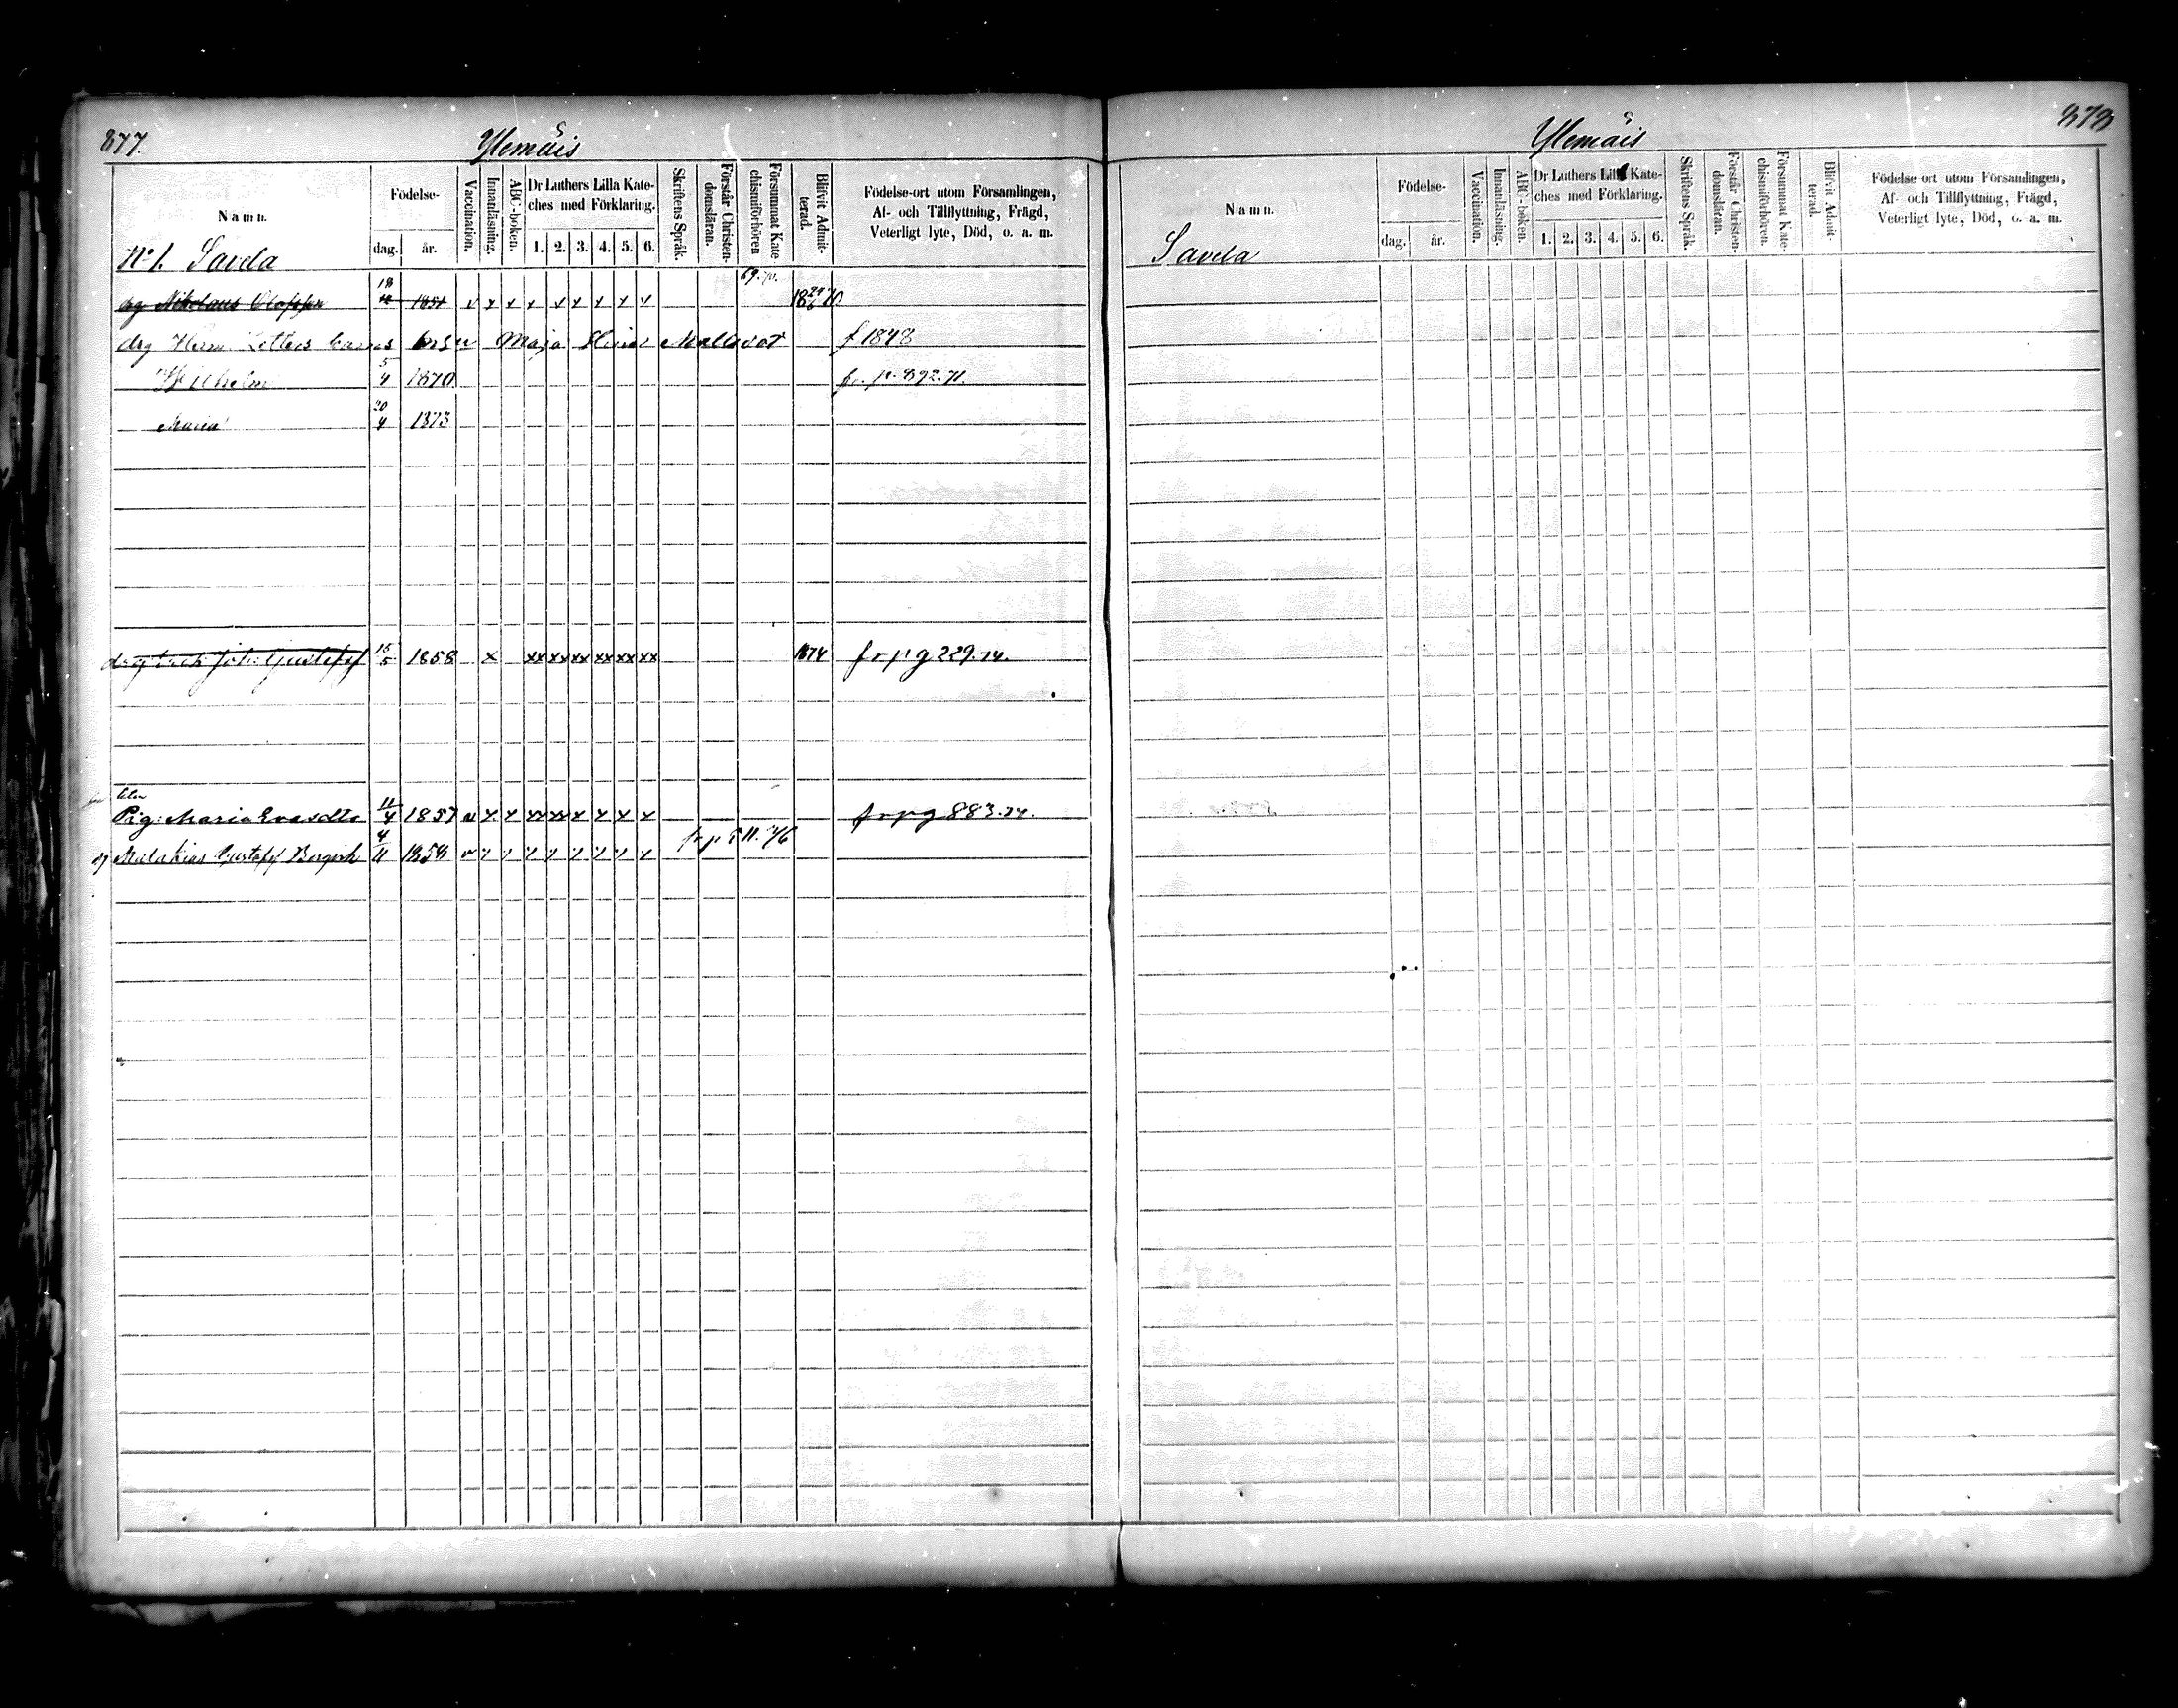 877.
Ylemäis
Namn.
Födelse-
dag. år.
Vaccination.
Innanläsning.
ABC-boken.
Dr Luthers Lilla Kate-
ches med Förklaring.
1. 2. 3. 4. 5. 6.
Skriftens Språk.
Förstår Christen-
domsläran.
Försummat Kate-
chismiförhören
Blifvit Admit-
terad.
Födelse-ort utom Församlingen,
Af- och Tillflyttning, Frägd,
Veterligt lyte, Död, o. a. m.
No 1. Savela
69. 70.
drg Nikolaus 18 1851 v x x x x x x x x 18 24/6 70
drg Herm. barns Maja f 1848
Wilhelm 5/4 1870 fr. p. 892. 71.
Maria 20/4 1873
drg Joh: Gustafsf 15/5 1858 x xx xx xx xx xx xx 1874 fr pg 229. 74.
Pig: Maria Evasdtr 11/4 1857 v x x xx xx x x x x fr pg 883. 74.
fr p 511. 76
Malakias Gustafsf 4/11 1858 v x x x x x x x x
878
Ylemäis
Namn.
Födelse-
dag. år.
Vaccination.
Innanläsning.
ABC-boken.
Dr Luthers Lilla Kate-
ches med Förklaring.
1. 2. 3. 4. 5. 6.
Skriftens Språk.
Förstår Christen-
domsläran.
Försummat Kate-
chismiförhören.
Blifvit Admit-
terad.
Födelse-ort utom Församlingen,
Af- och Tillflyttning, Frägd,
Veterligt lyte, Död, o. a. m.
Savela